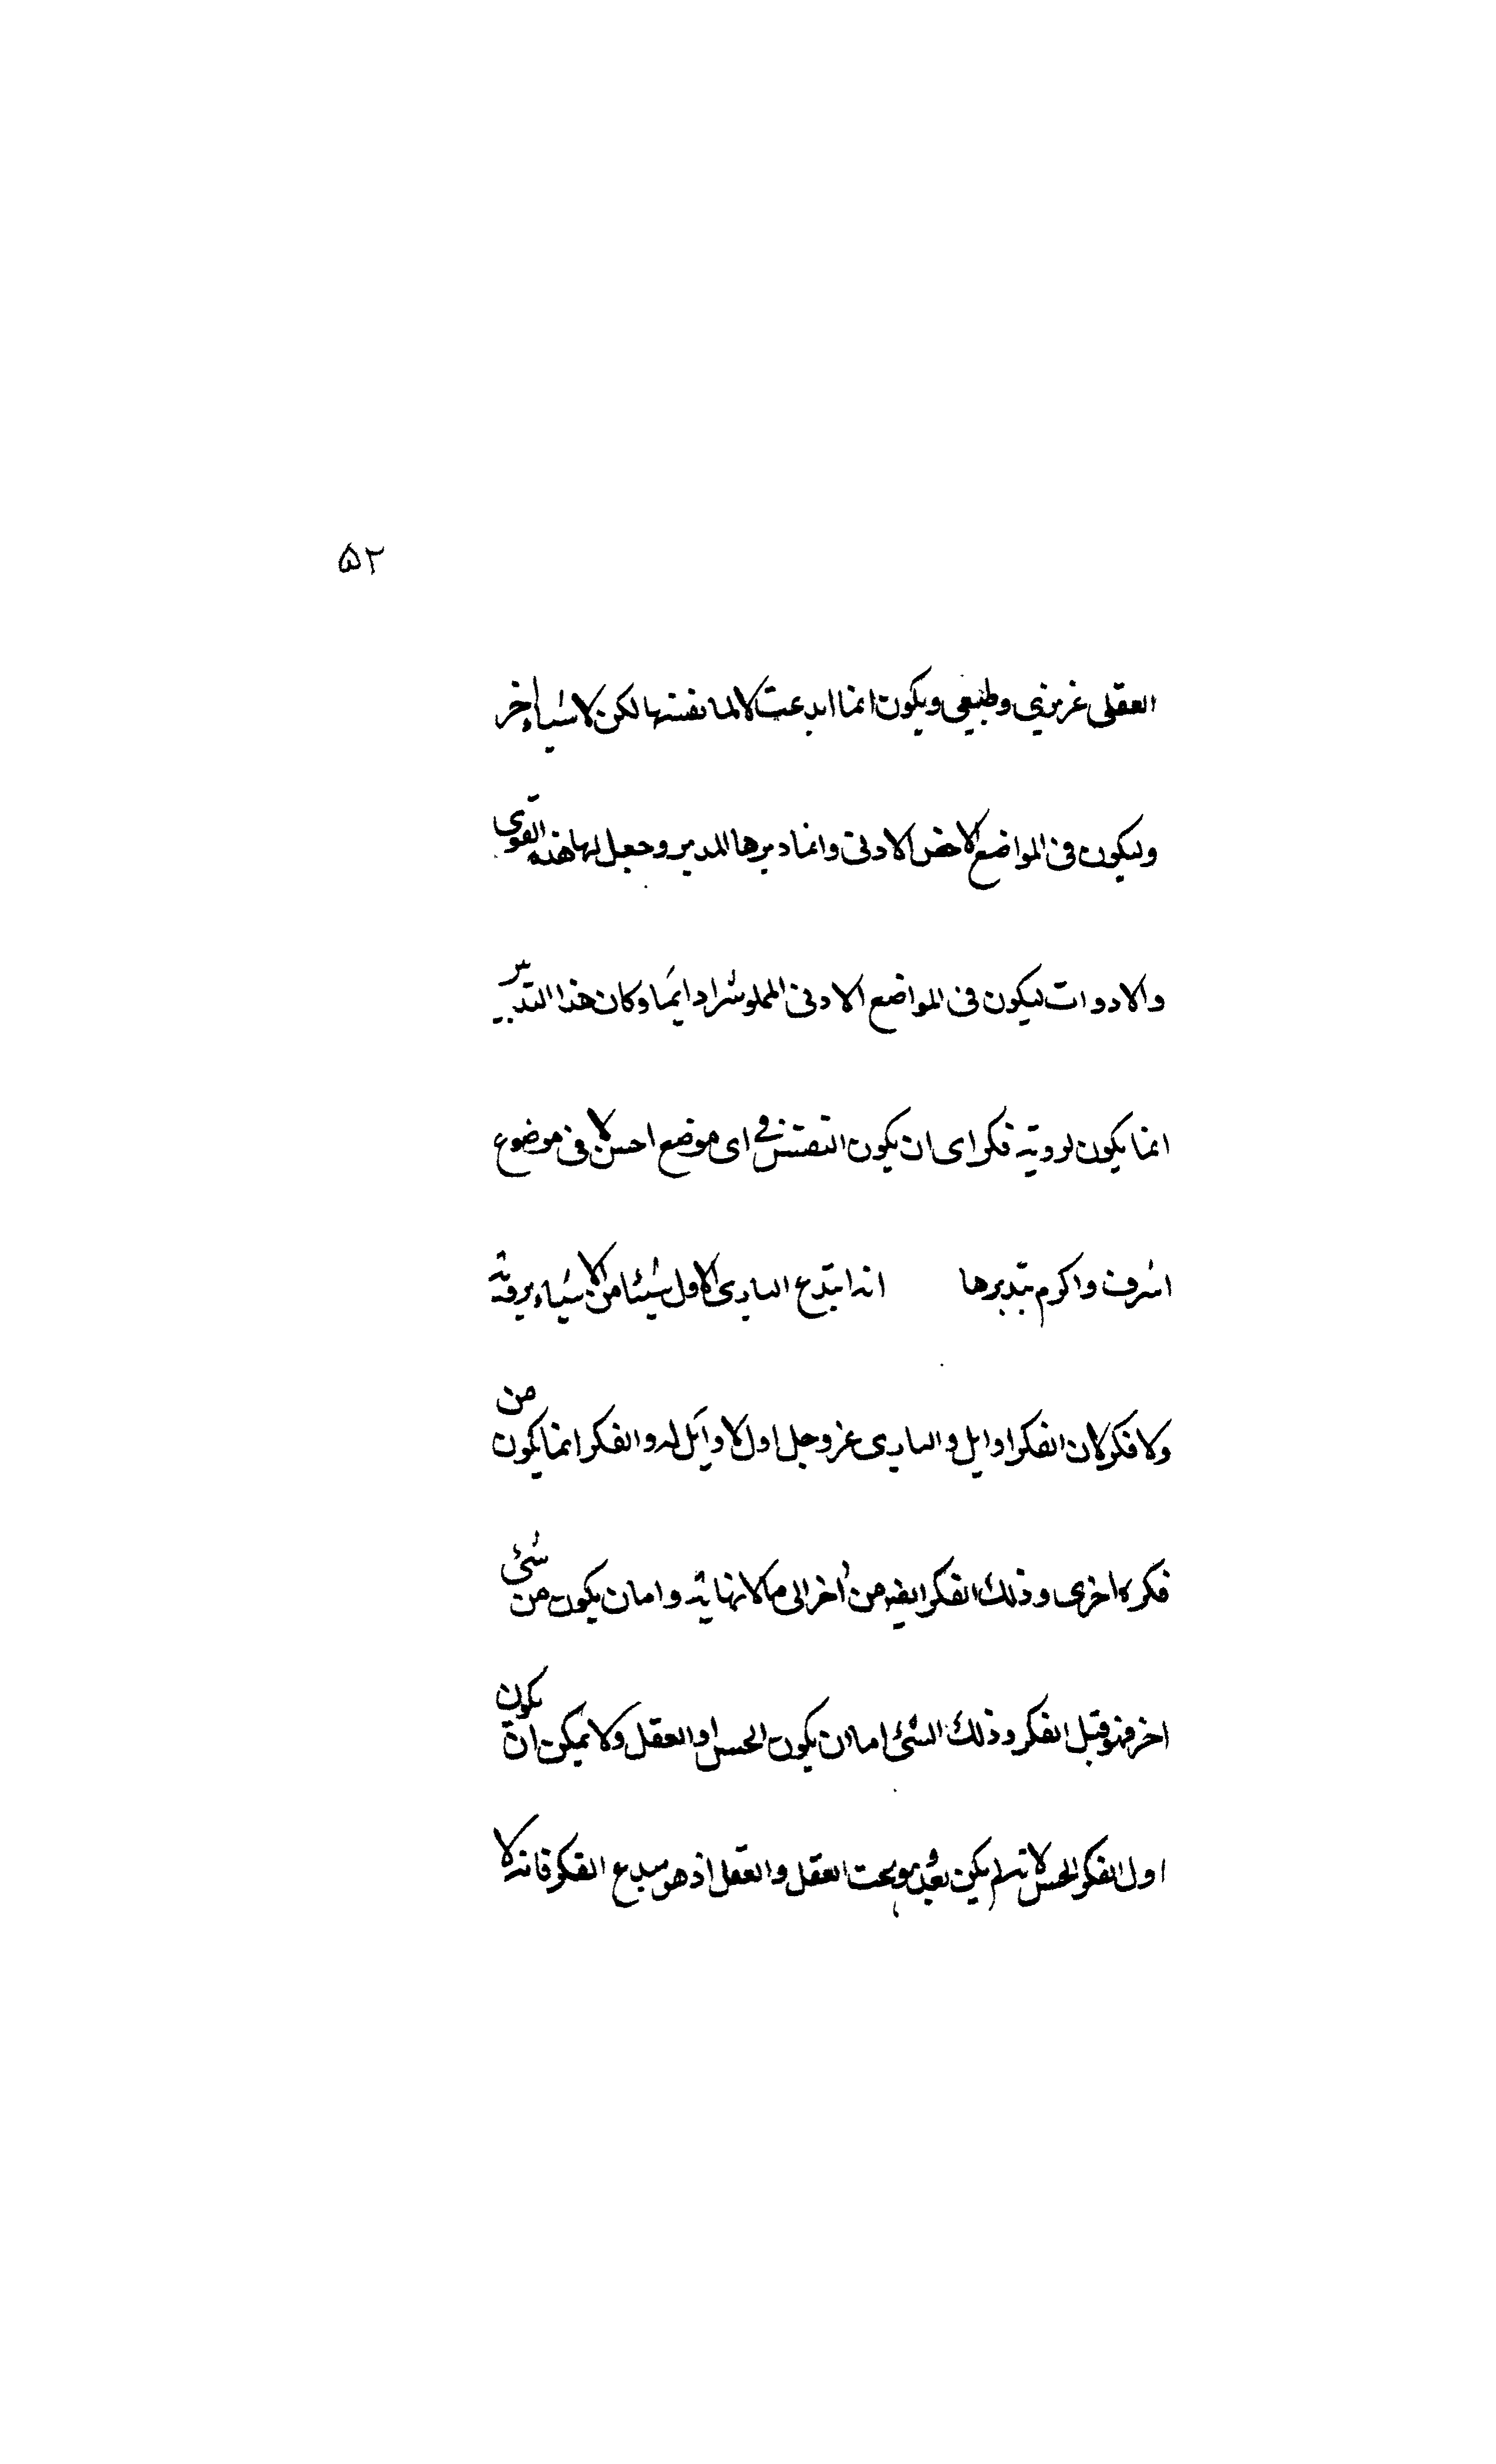 ۵۲
العقلى غريزي وطبيعى ويكون انما ابدعت لا لما نفسها لكن لاشياء اخر
وليكون فى المواضع الاخص الادنى وانما دبرها المدبر وجعل لها هذه القوى
والادوات ليكون فى المواضع الادنى المملو شرا دايما وكان هذا التدبير
انما يكون لروية فكر اى ان يكون النفس فى اى موضع احسن لا فى موضوع
اشرف واكرم بتدبرها انه ابتدع البارى الاول شيئا من الاشياء بروية
ولا فكر لان الفكر اوايل والبارى عز وجل اول لا وايل له والفكر انما يكون من
فكرة اخرى وذلك الفكر ايضه من اخر الى ما لا نهاية واما ان يكون من شئ
اخر فهو قبل الفكر وذلك الشئ اما ان يكون الحس او العقل ولا يمكن ان يكون
اول الفكر الحس لانه لم يكن بعد وهو تحت العقل والعقل اذ هو مبدع الفكر فانه لا